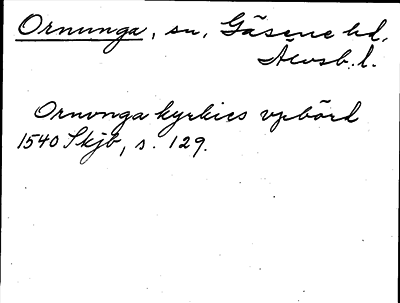 Ornunga, sn, Gäsene hd,
Älvsb. l.
Ornunga kyrkies vpbörd
1540 Skjb, s. 129.